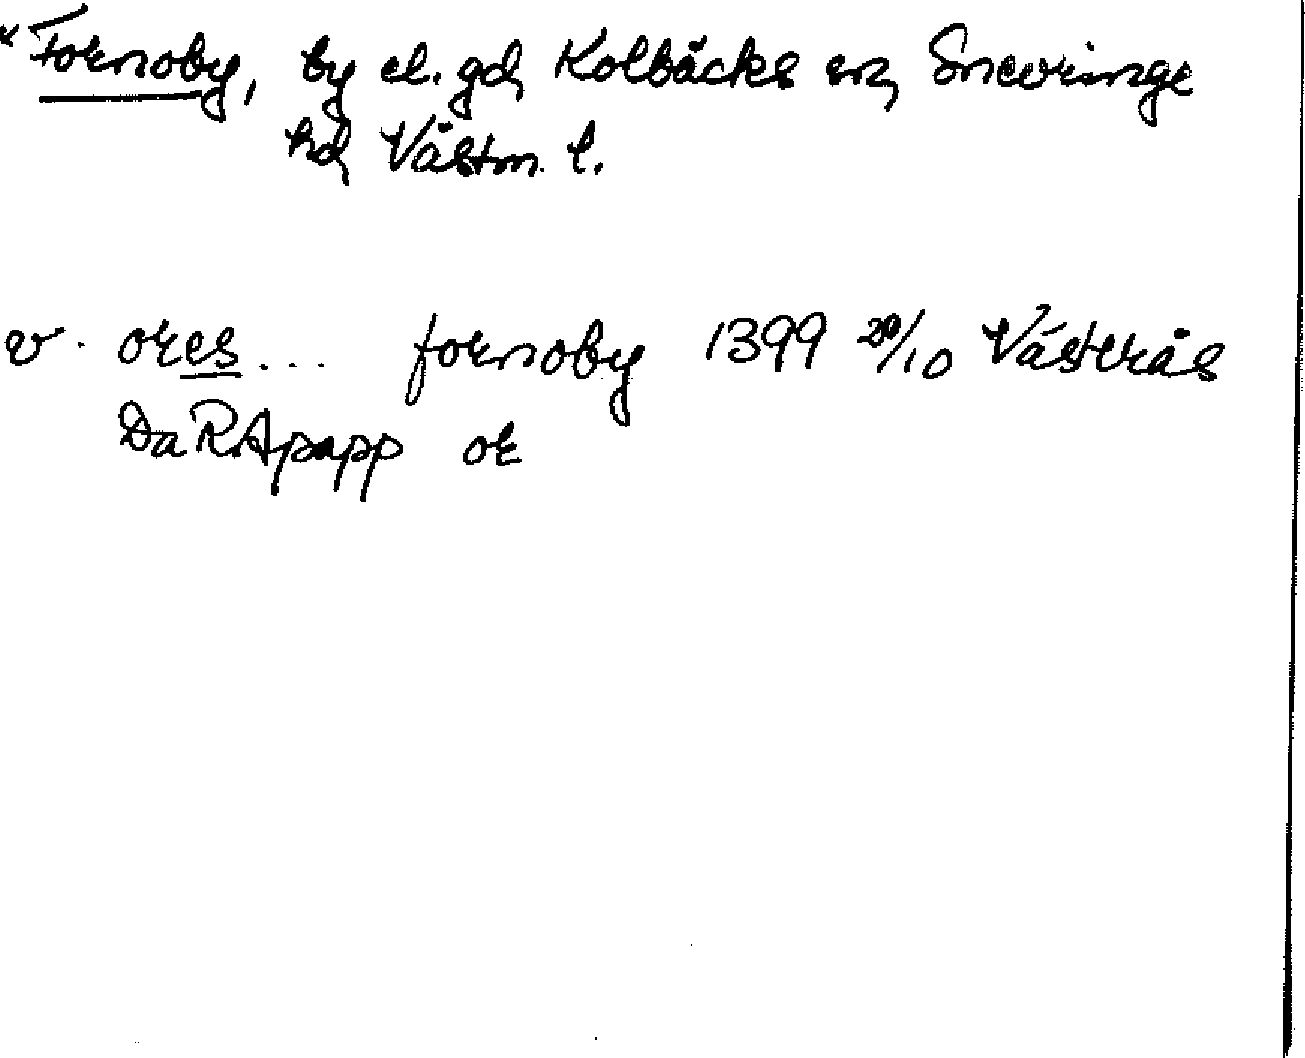 * Fornoby, by el. gd, Kolbäcks sn, Snevringe
hd, Västm. l.
v. ores ... fornoby 1399 20/10 Västerås
DaRApapp or